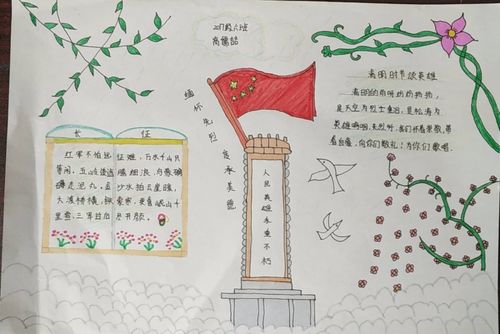 六班
缅怀先烈 传承美德
长 征
红军不怕远征难，万水千山只
等闲。五岭逶迤腾细浪，乌蒙磅
礴走泥丸。金沙水拍云崖暖，
大渡桥横铁索寒。更喜岷山千
里雪，三军过后尽开颜。
人民英雄永垂不朽
清明时节颂英雄
清明的雨
是天空为烈士垂泪，是松涛为
英雄呜咽。先烈们，我们怀着崇敬，带
着自豪，向你们敬礼！为你们歌唱。